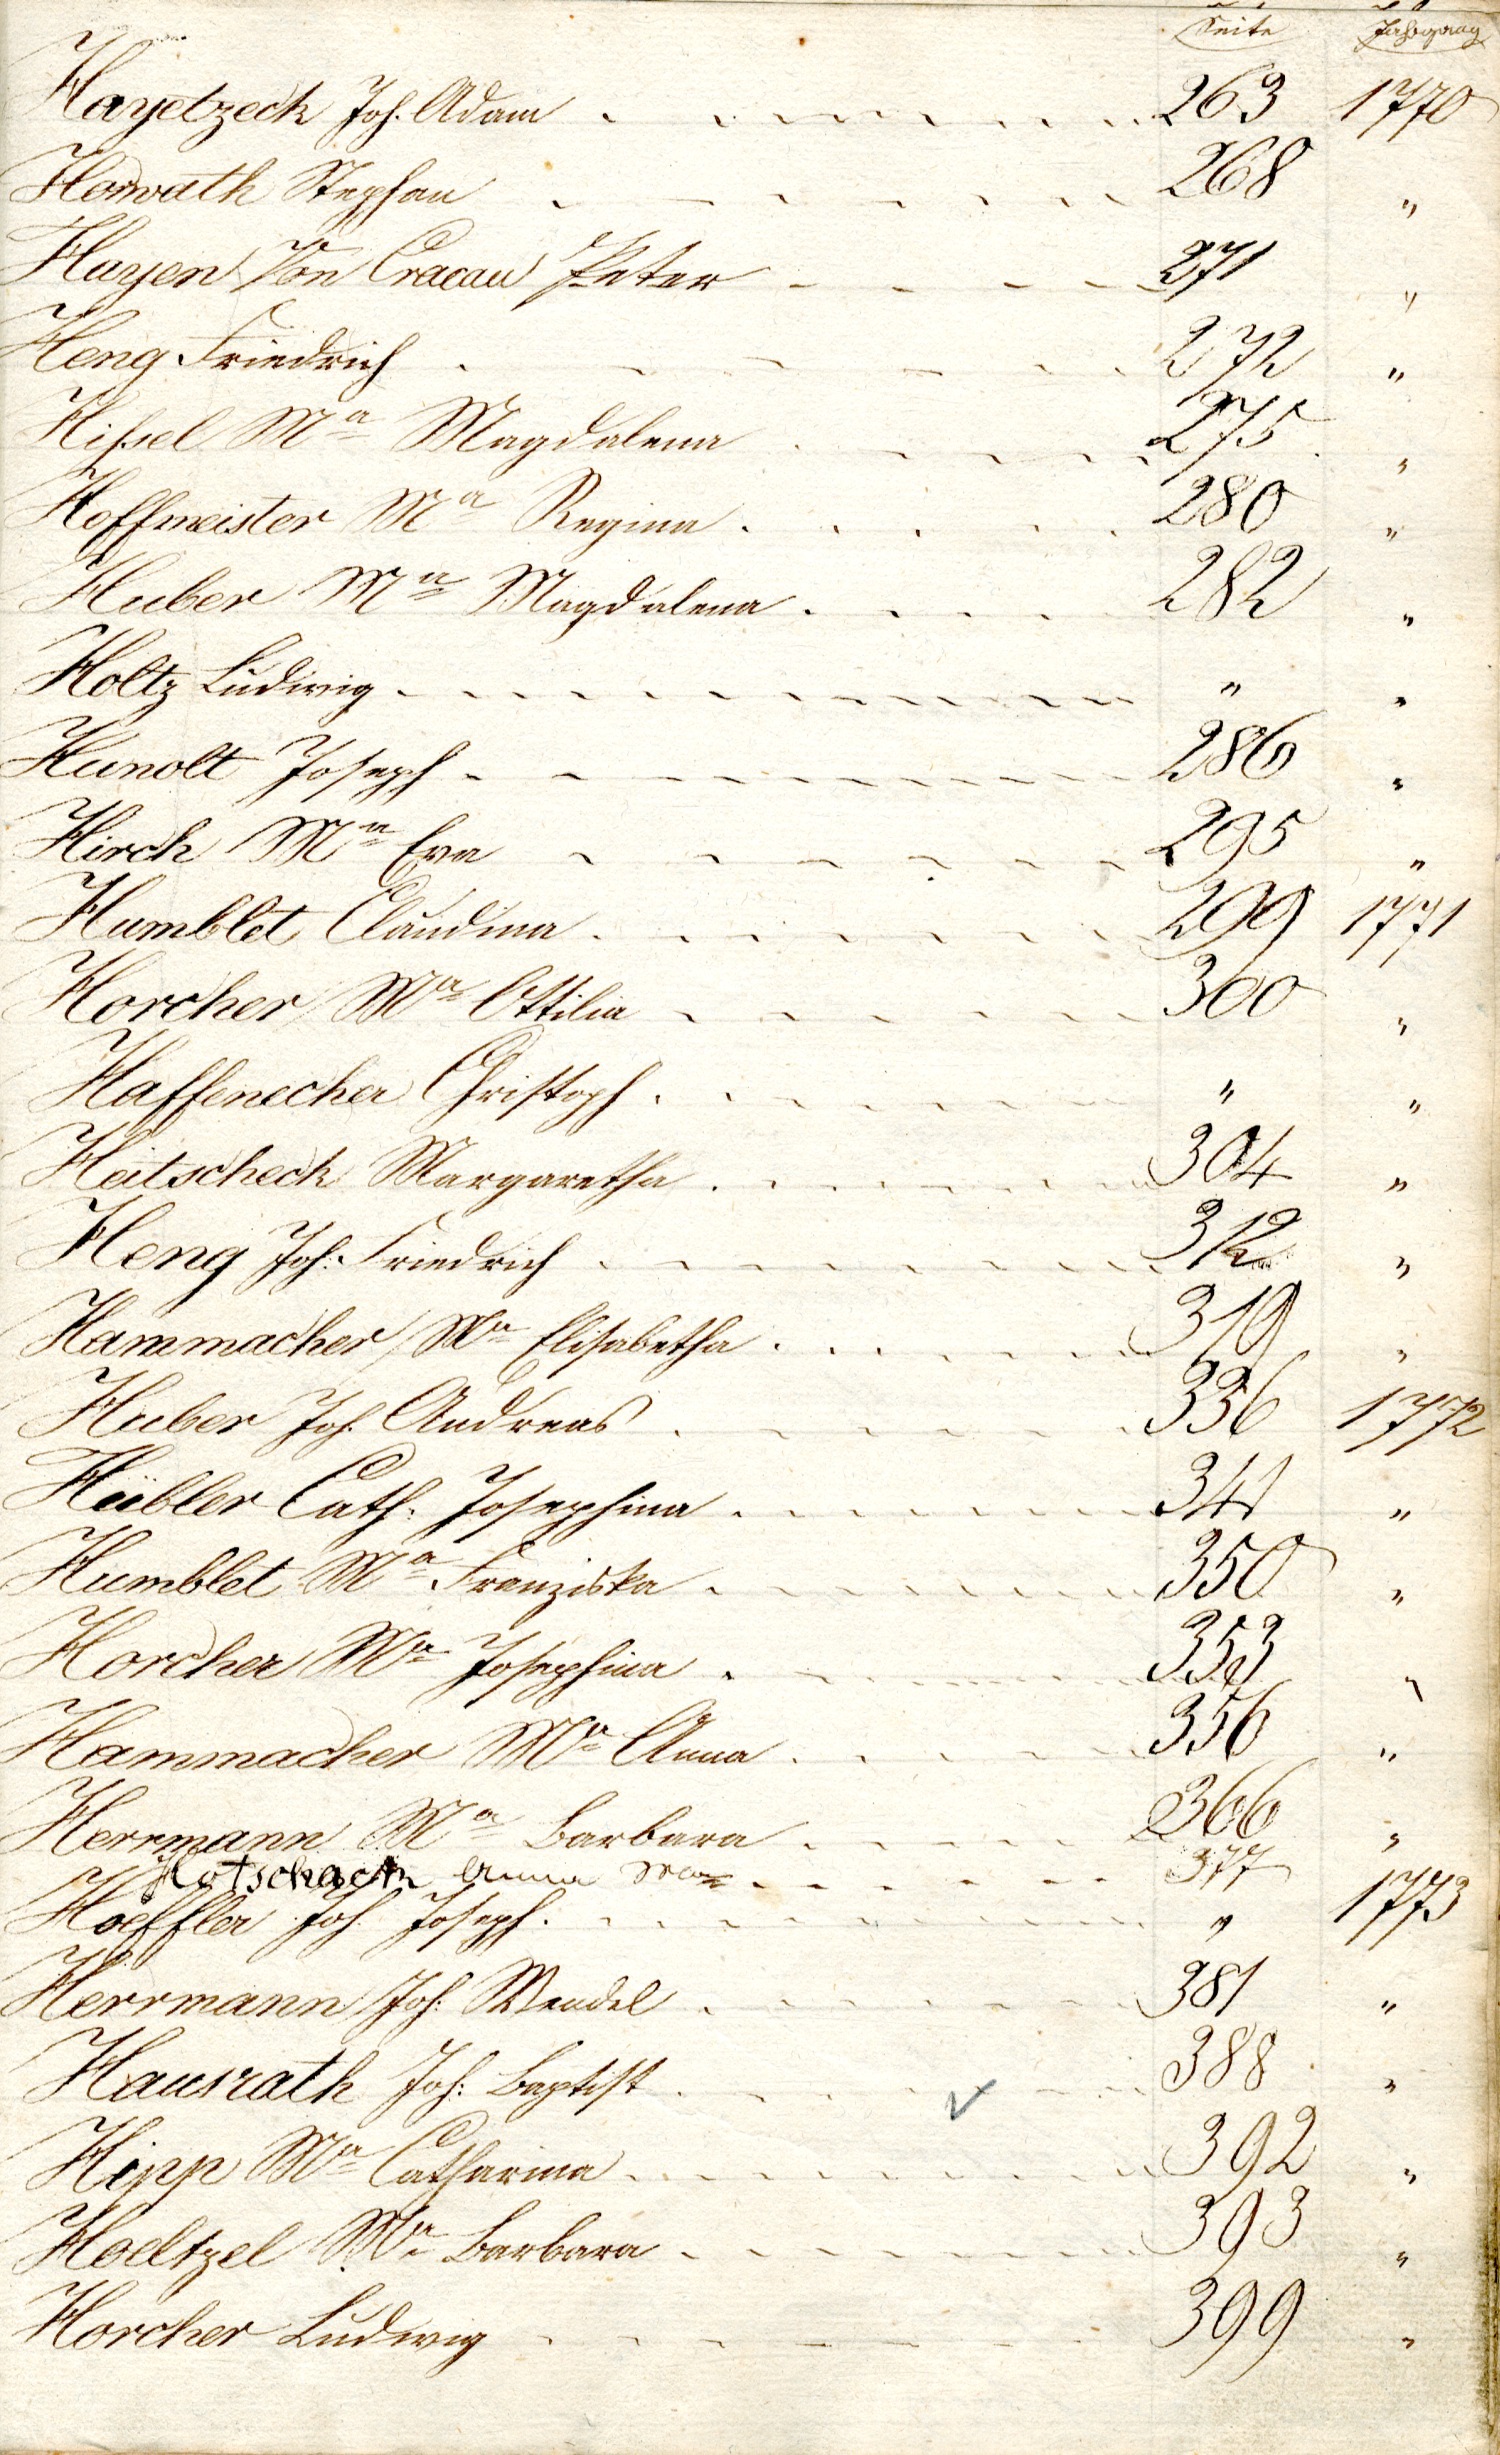 Seite Jahrgang
Hayetzeck Joh. Adam 263 1770
Horwath Stephan 268 "
Huyen Von Cracau Peter 271 "
Heng Friedrich 272 "
Hißel Ma Magdalena 275 "
Hoffmeister Ma Regina 280 "
Huber Ma Magdalena 282 "
Holtz Ludwig " "
Hunolt Joseph 286 "
Hirch Ma Eva 295 "
Humblet Claudina 299 1771
Horcher Ma Ottilia 300 "
Haffenecher Christoph " "
Heitscheck Margaretha 304 "
Heng Joh: Friedrich 312 "
Hammacher Ma Elisabetha 319 "
Huber Joh. Andreas 336 1772
Hübler Cath: Josephina 341 "
Humblet Ma Franziska 350 "
Horcher Ma Josephina 353 "
Hammacher Ma Anna 356 "
Herrmann Ma Barbara 366 "
Hotscheck Anna Ma 377
Hoeffler Joh. Joseph " 1773
Herrmann Joh: Wendel 381 "
Hausrath Joh: Baptist 388 "
Hipp Ma Catharina 392 "
Hoeltzel Ma Barbara 393 "
Horcher Ludwig 399 "